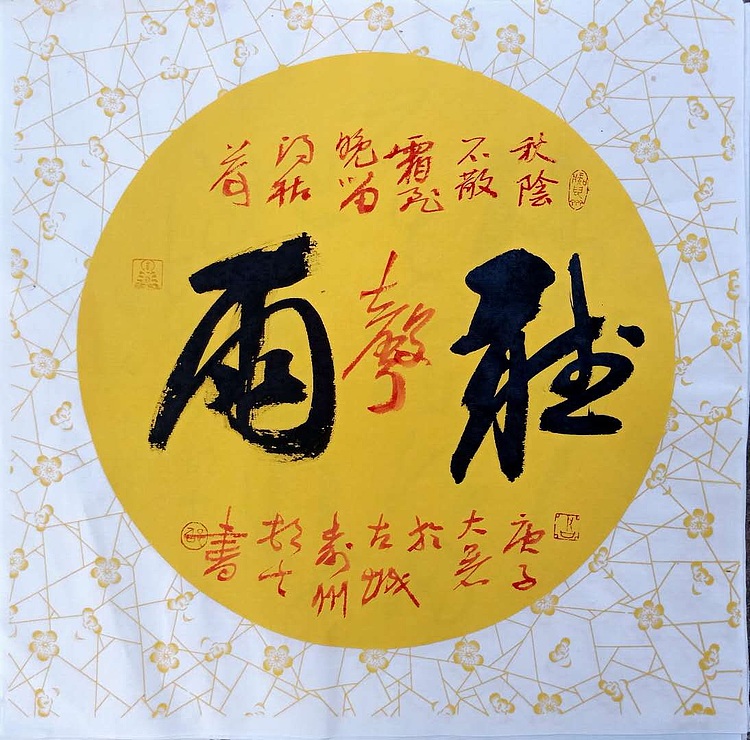 秋陰
不散
霜飛
晚留
得枯
荷
聽
雨
聲
庚子
大暑
於
古城
寿州
書